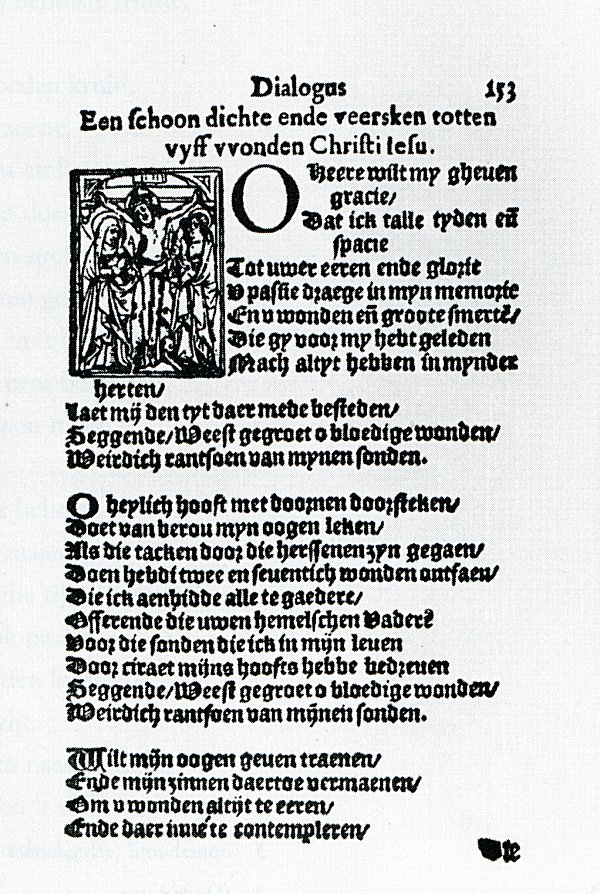 Dialogus 153
Een schoon dichte ende veersken totten
vyff vvonden Christi Iesu.
O Heere wilt my gheuen
gracie/
Dat ick talle tyden eñ
spacie
Tot uwer eeren ende glorie
V passie draege in myn memorie
En v wonden eñ groote smertē/
Die gy voor my hebt geleden
Mach altyt hebben in mynder
herten/
Laet mij den tyt daer mede besteden/
Seggende/Weest gegroet o bloedige wonden/
Weirdich rantsoen van mynen sonden.
O heylich hooft met doornen doorsteken/
Doet van berou myn oogen leken/
Als die tacken door die herssenen zyn gegaen/
Doen hebdi twee en seuentich wonden ontfaen/
Die ick aenbidde alle te gaedere/
Offerende die uwen hemelschen Vaderē
Voor die sonden die ick in mijn leuen
Door ciraet mijns hoofts hebbe bedreuen
Seggende/Weest gegroet o bloedige wonden/
Weirdich rantsoen van mijnen sonden.
Wilt mijn oogen geuen traenen/
Ende mijn zinnen daertoe vermaenen/
Om v wonden altijt te eeren/
Ende daer inne te contempleren/